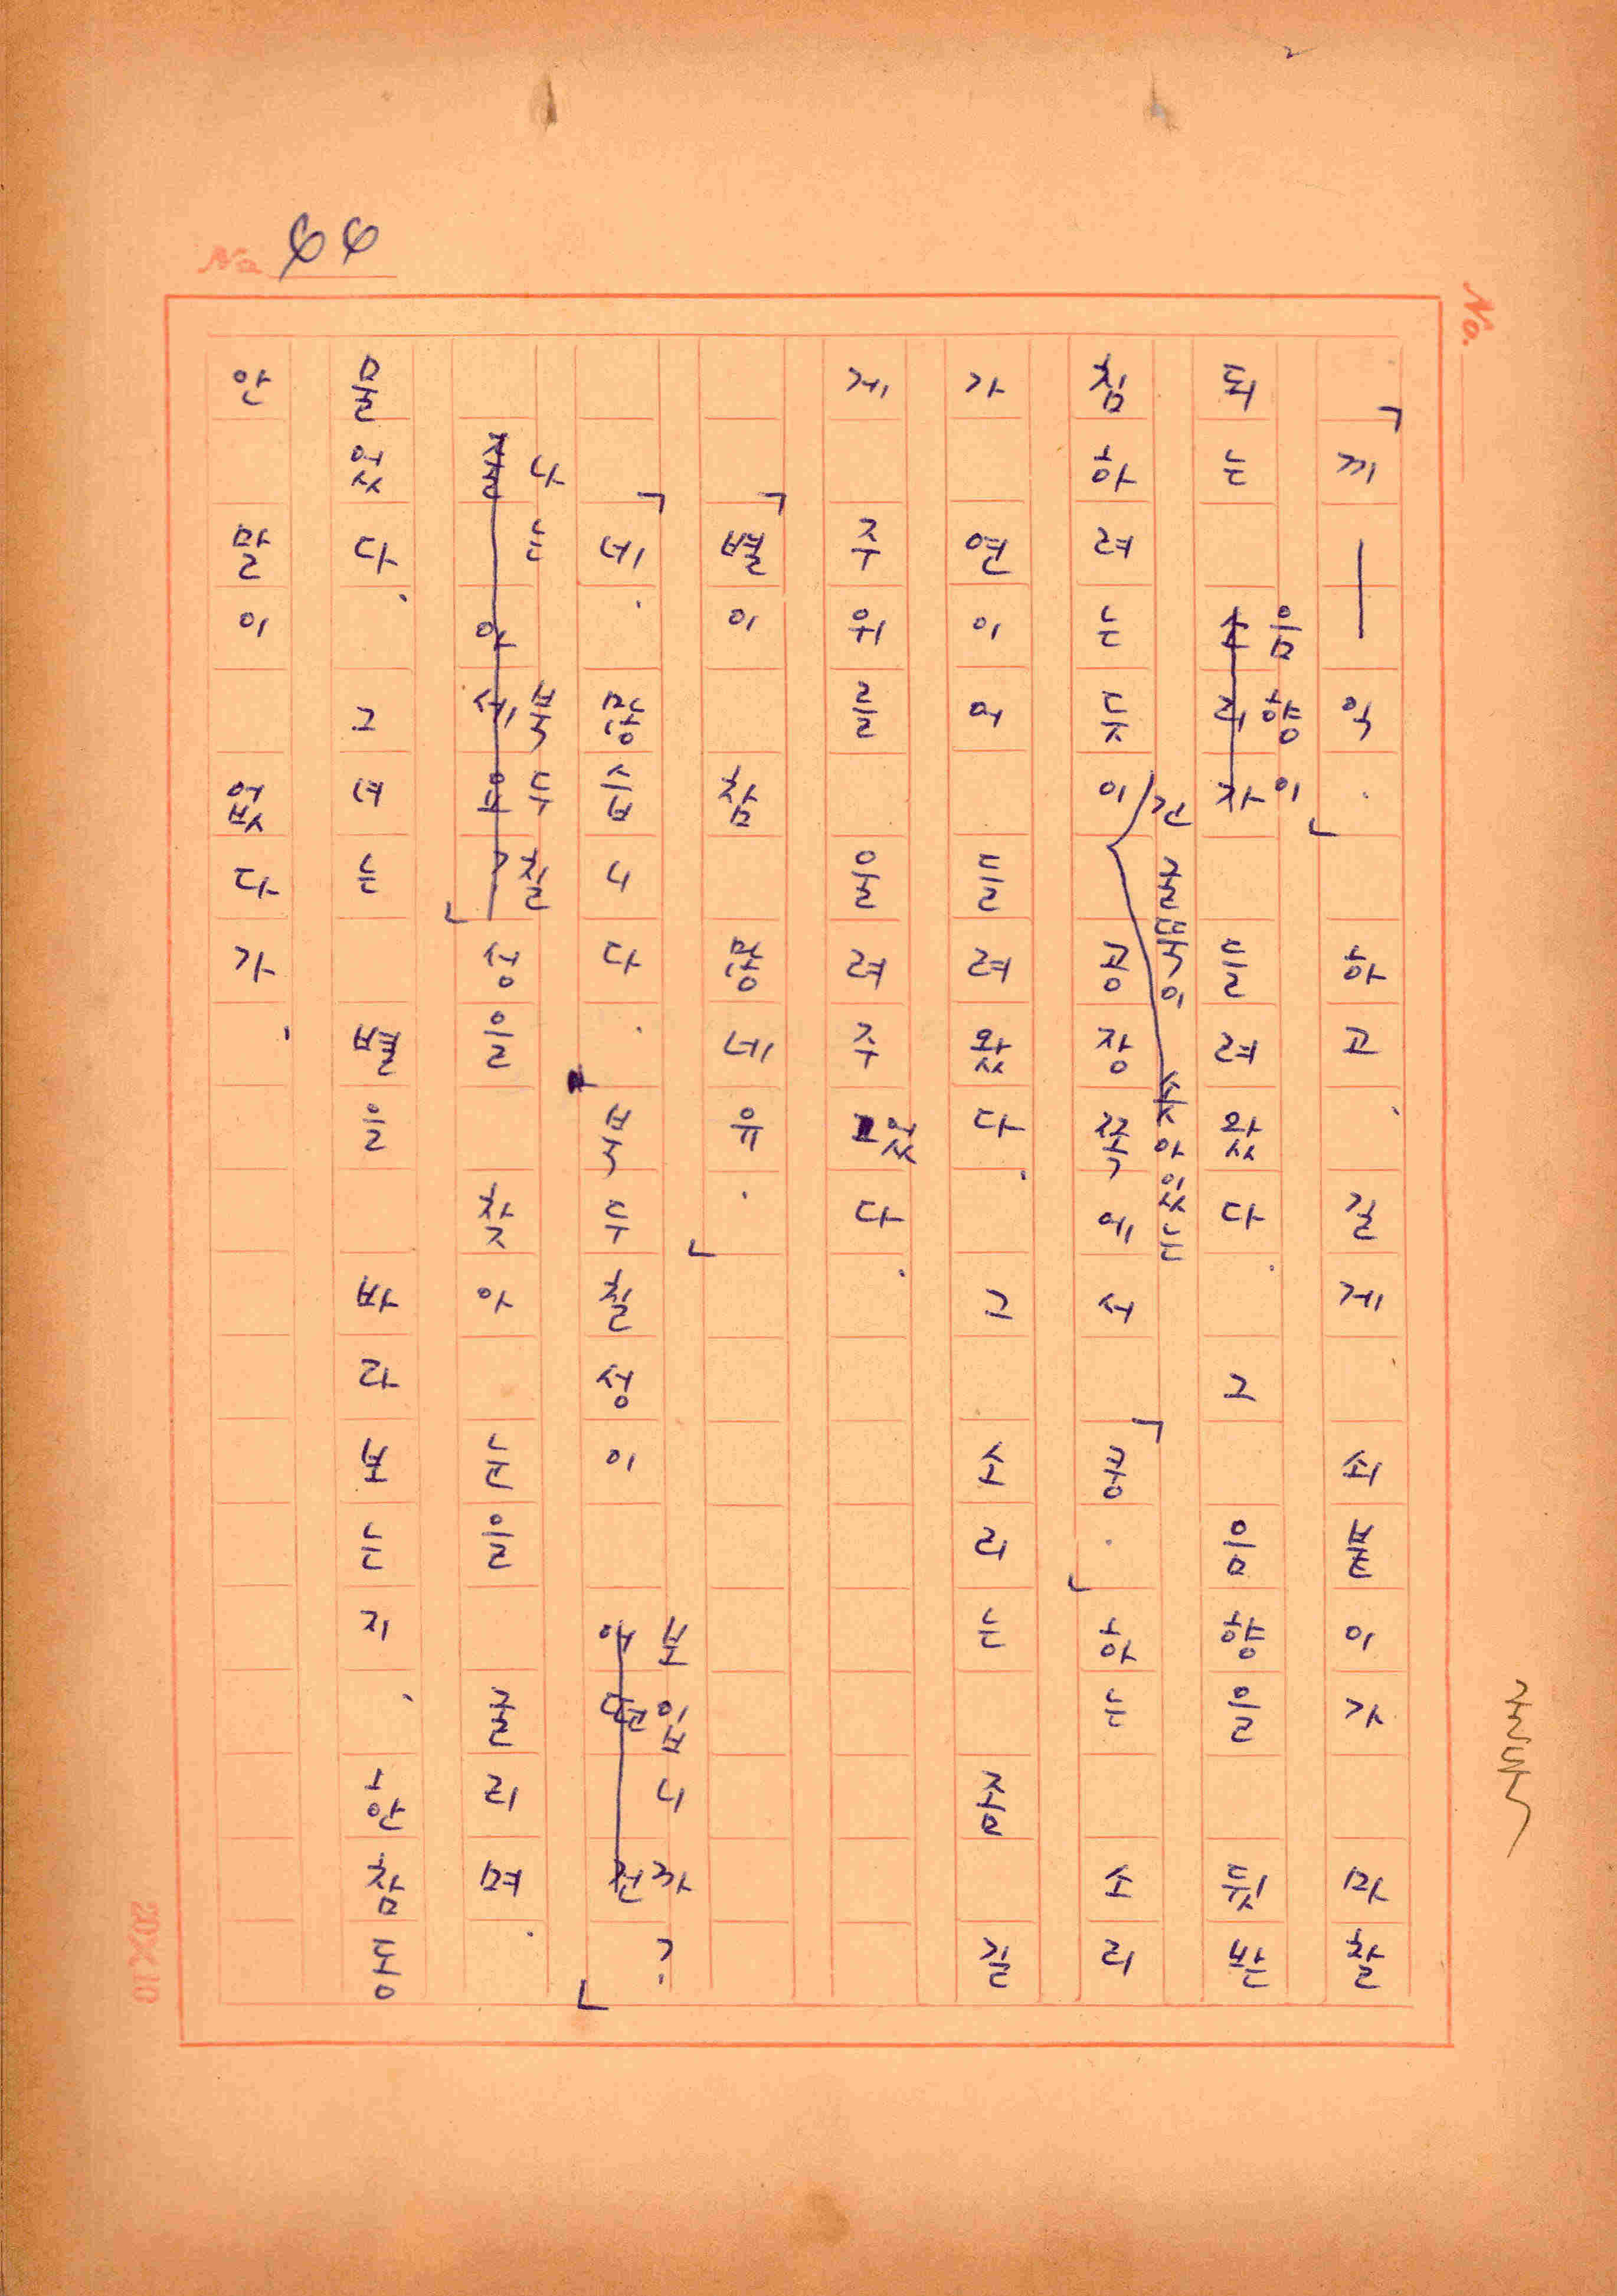 No.
「끼──익.」하고, 길게 쇠붙이가 마찰
되는 음향이 들려왔다. 그 음향을 뒷받
침하려는 듯이 긴 굴뚝이 솟아있는 공장쪽에서 「쿵.」하는 소리
가 연이어 들려왔다. 그 소리는 좀 길
게 주위를 울려주었다.
「별이 참 많네유.」
「네. 많습니다. 북두칠성이 보입니까?」
나는 북두칠성을 찾아 눈을 굴리며.
물었다. 그녀는 별을 바라보는지, 한참동
안 말이 없다가,
굴뚝
No
20×10